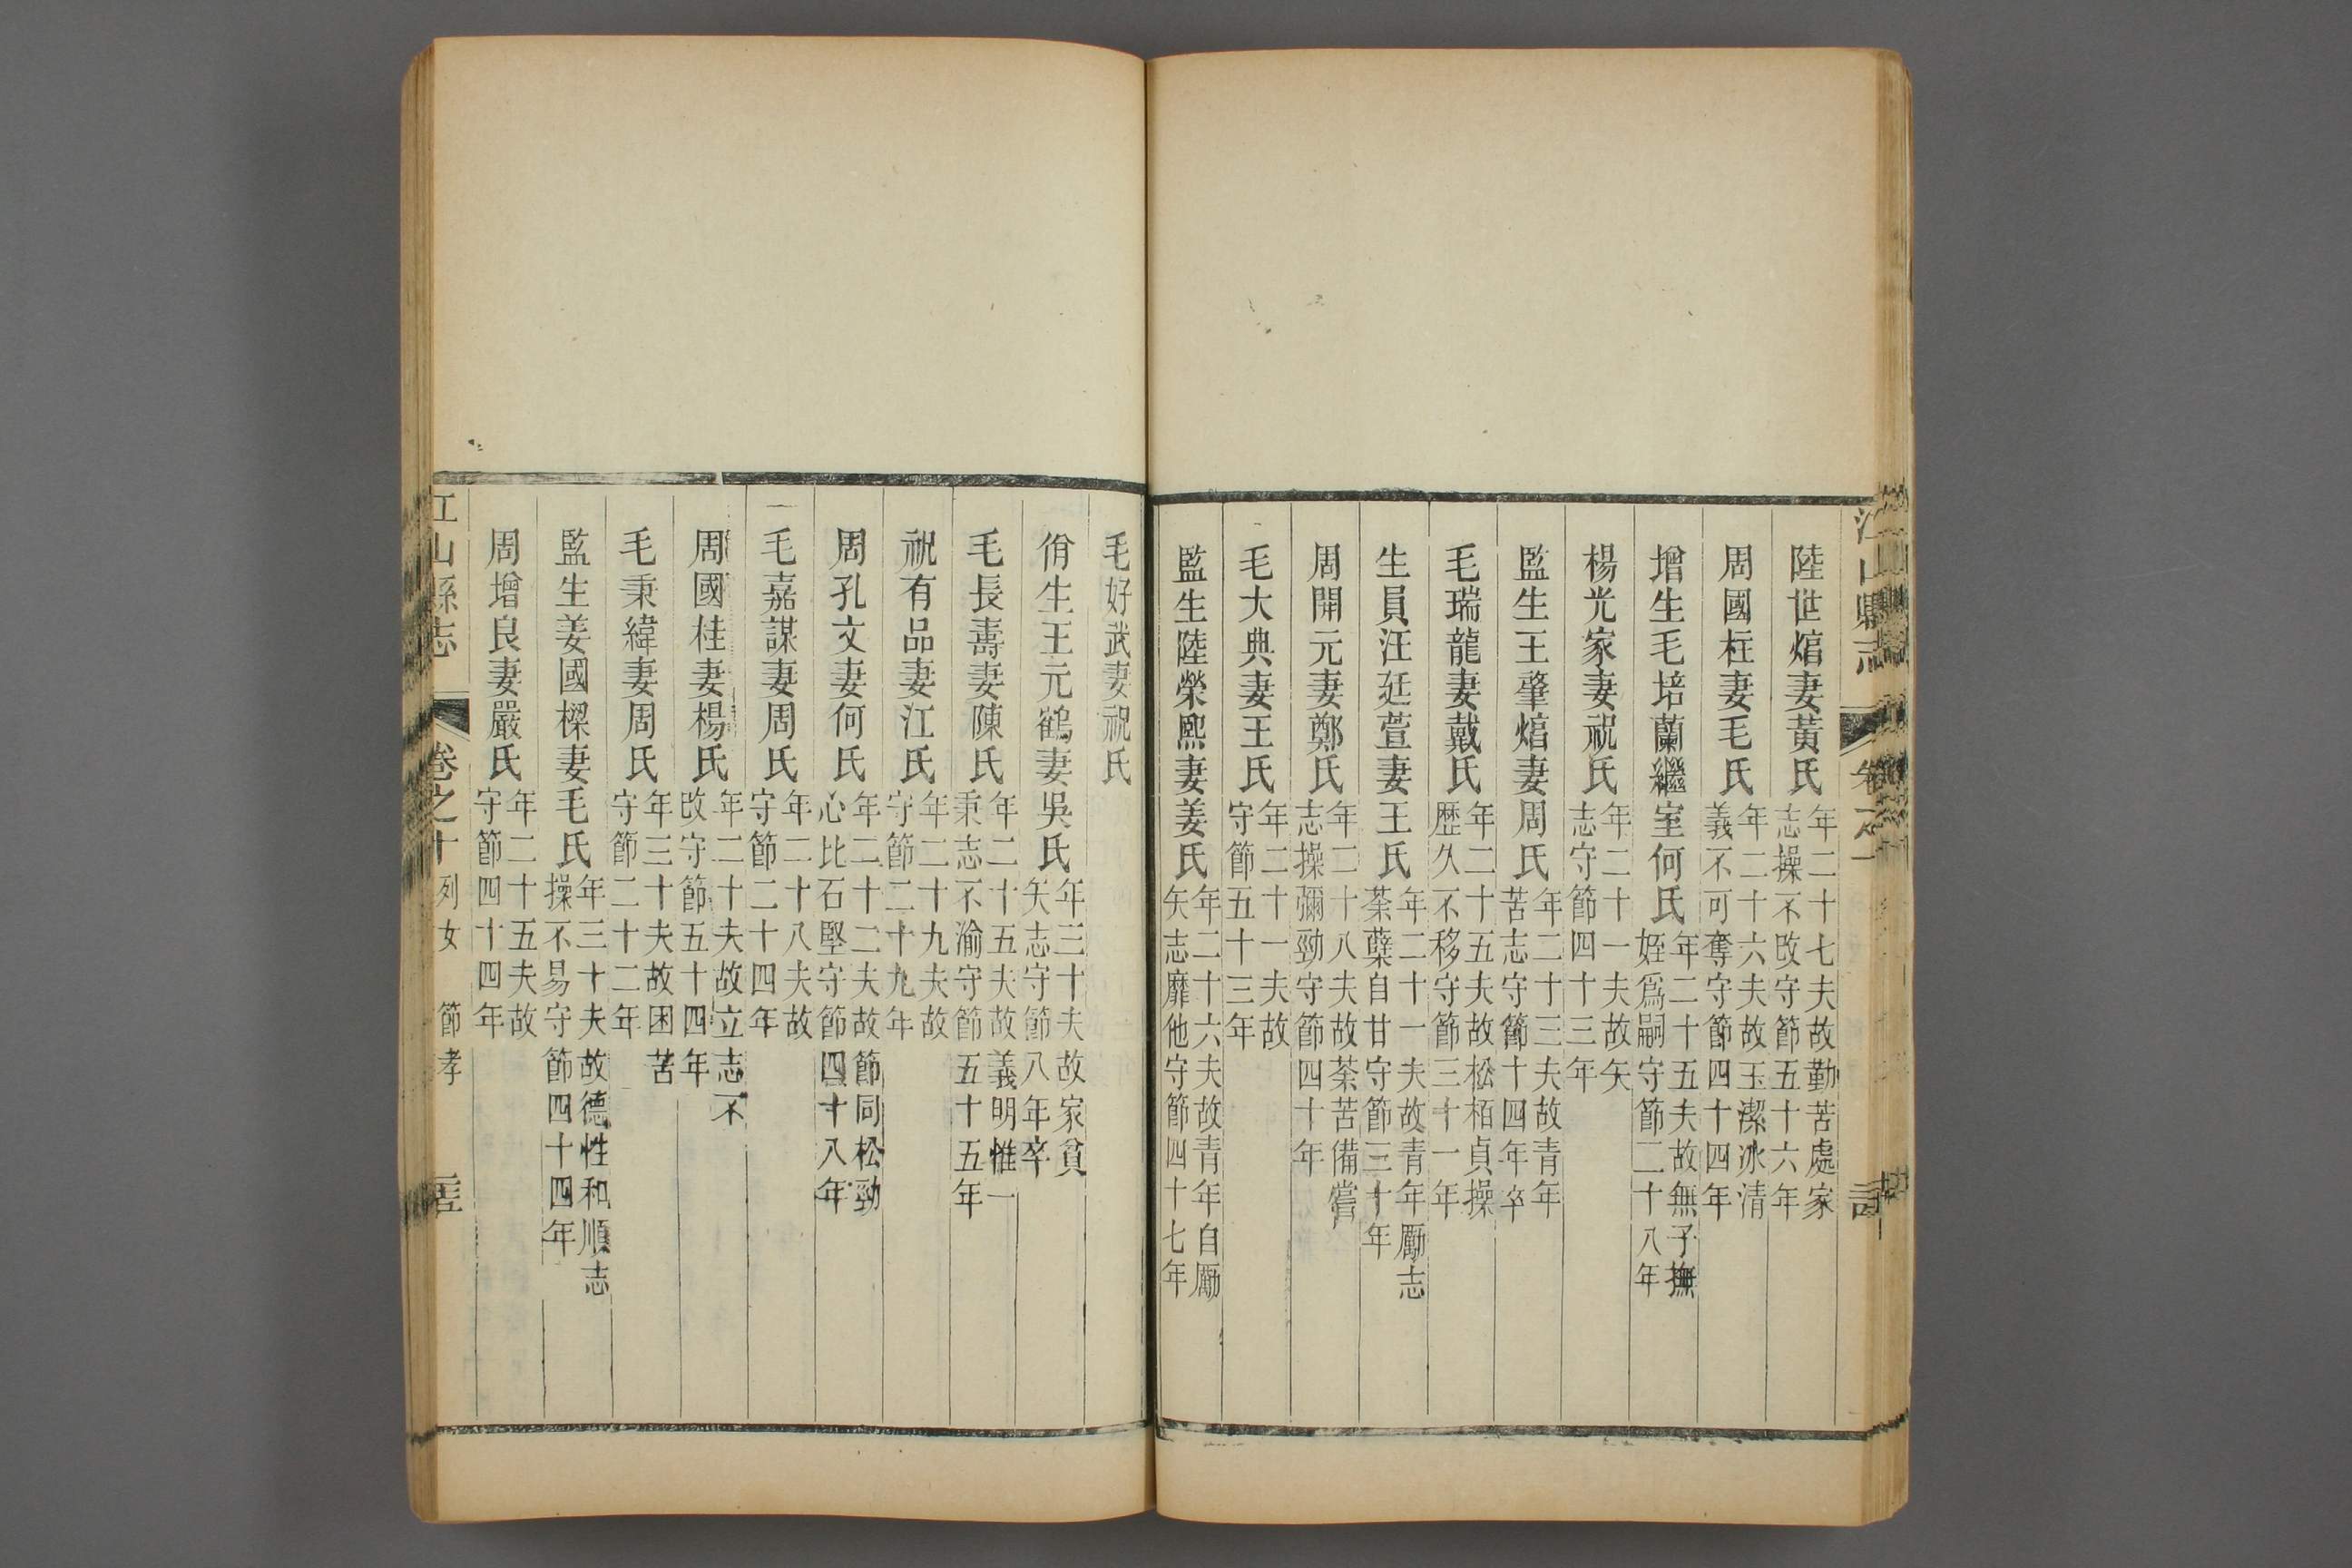 陸世熍妻黃氏年二十七夫故勤苦處家志操不改守節五十六年
周國柱妻毛氏年二十六夫故玉潔冰清義不可奪守節四十四年
增生毛培蘭繼室何氏年二十五夫故無子撫姪爲嗣守節二十八年
楊光家妻祝氏年二十一夫故矢志守節四十三年
監生王肇熍妻周氏年二十三夫故青年苦志守節十四年卒
毛瑞龍妻戴氏年二十五夫故松栢貞操歷久不移守節三十一年
生員汪廷萱妻王氏年二十一夫故青年勵志荼蘗自甘守節三十年
周開元妻鄭氏年二十八夫故荼苦備嘗志操彌勁守節四十年
毛大典妻王氏年二十一夫故守節五十三年
監生陸榮熙妻姜氏年二十六夫故青年自勵矢志靡他守節四十七年
毛好武妻祝氏
佾生王元鶴妻吳氏年三十夫故家貧矢志守節八年卒
毛長壽妻陳氏年二十五夫故義明惟一秉志不渝守節五十五年
祝有品妻江氏年二十九夫故守節二十九年
周孔文妻何氏年二十二夫故節同松勁心比石堅守節四十八年
毛嘉謀妻周氏年二十八夫故守節二十四年
周國桂妻楊氏年二十夫故立志不改守節五十四年
毛秉緯妻周氏年三十夫故困苦守節二十二年
監生姜國樑妻毛氏年三十夫故德性和順志操不易守節四十四年
周增良妻嚴氏年二十五夫故守節四十四年
江山縣志 卷之十 列女 節孝